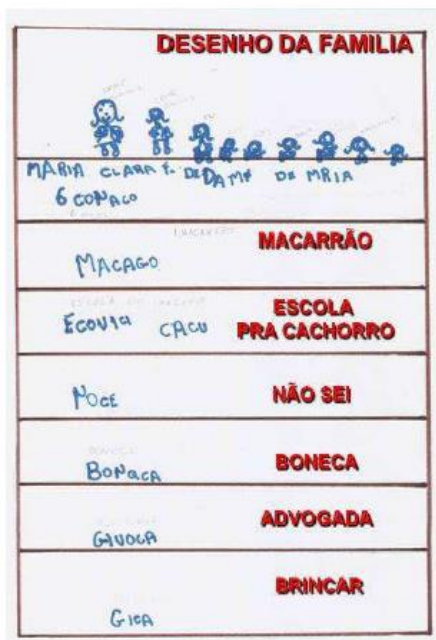 DESENHO DA FAMILIA
MARIA CLARA F. DE DAME DE MRIA
6 CONACO
MACARRÃO
MACAGO
ESCOLA
PRA CACHORRO
ECOVIA CACU
NÃO SEI
NOCE
BONECA
BONACA
ADVOGADA
GAVOCA
BRINCAR
GICA